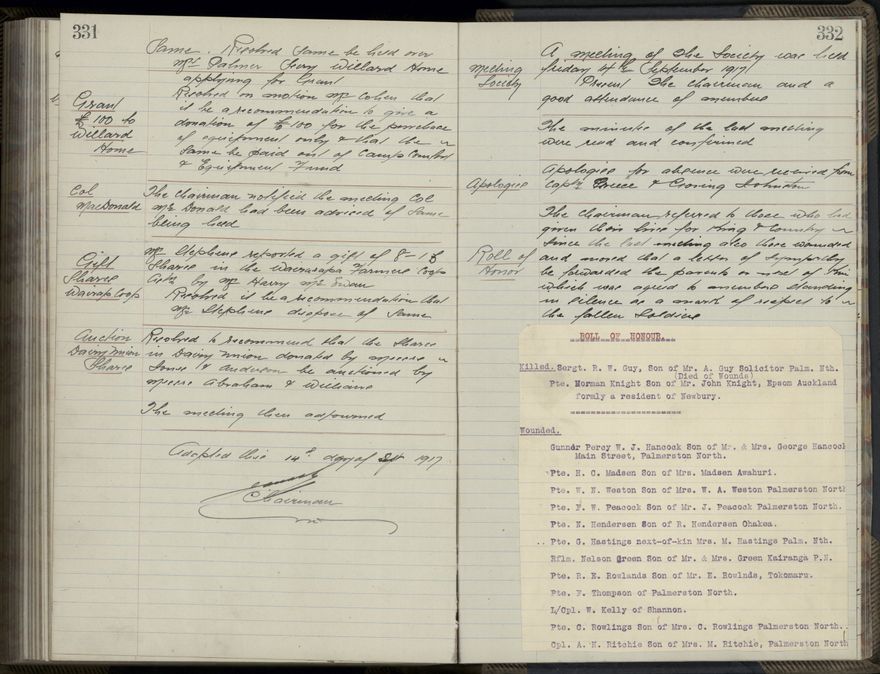 331
Same. Resolved same be held over
Mrs Palmer Perry Willard Home
applying for Grant
Grant
£100 to
Willard
Home
Resolved on motion Mr Cohen that
it be a recommendation to give a
donation of £100 for the purchase
of equipment only & that the
same be paid out of Camp Comfort
& Equipment Fund
Col
MacDonald
The Chairman notified the meeting Col
McDonald had been advised of same
being held
Gift
Shares
Wairarapa Coop
Mr Stephens reported a gift of 8 - £
Shares in the Wairarapa Farmers Coop
by Mr Harry
Resolved it be a recommendation that
Mr Stephens dispose of same
Auction
Dairy Union
Shares
Resolved to recommend that the Shares
in Dairy Union donated by Messrs
& Anderson be auctioned by
Messrs Abraham & Williams
The meeting then adjourned
Adopted this 14th day of Sept 1917
Chairman
332
Meeting
Society
A meeting of the Society was held
Friday 4th September 1917
Present The Chairman and a
good attendance of members
The minutes of the last meeting
were read and confirmed
Apologies
Apologies for absence were received from
Capt & Johnston
Roll of
Honor
The Chairman referred to those who had
given their lives for King & Country
since the last meeting also those wounded
and moved that a letter of sympathy
be forwarded the parents or next of Kin
which was agreed to members standing
in silence as a mark of respect to
the fallen Soldiers
ROLL OF HONOUR.
Killed. Sergt. R. W. Guy, Son of Mr. A. Guy Solicitor Palm. Nth.
(Died of Wounds)
Pte. Norman Knight Son of Mr. John Knight, Epsom Auckland
formly a resident of Newbury.
Wounded.
Gunner Percy W. J. Hancock Son of Mr. & Mrs. George Hancock
Main Street, Palmerston North.
Pte. H. C. Madsen Son of Mrs. Madsen Awahuri.
Pte. W. N. Weston Son of Mrs. W. A. Weston Palmerston North
Pte. F. W. Peacock Son of Mr. J. Peacock Palmerston North.
Pte. N. Hendersen Son of R. Hendersen Ohakea.
Pte. G. Hastings next-of-kin Mrs. M. Hastings Palm. Nth.
Rflm. Nelson Green Son of Mr. & Mrs. Green Kairanga P.N.
Pte. R. E. Rowlands Son of Mr. E. Rowlnds, Tokomaru.
Pte. F. Thompson of Palmerston North.
L/Cpl. W. Kelly of Shannon.
Pte. C. Rowlings Son of Mrs. C. Rowlings Palmerston North.
Cpl. A. N. Ritchie Son of Mrs. M. Ritchie, Palmerston North